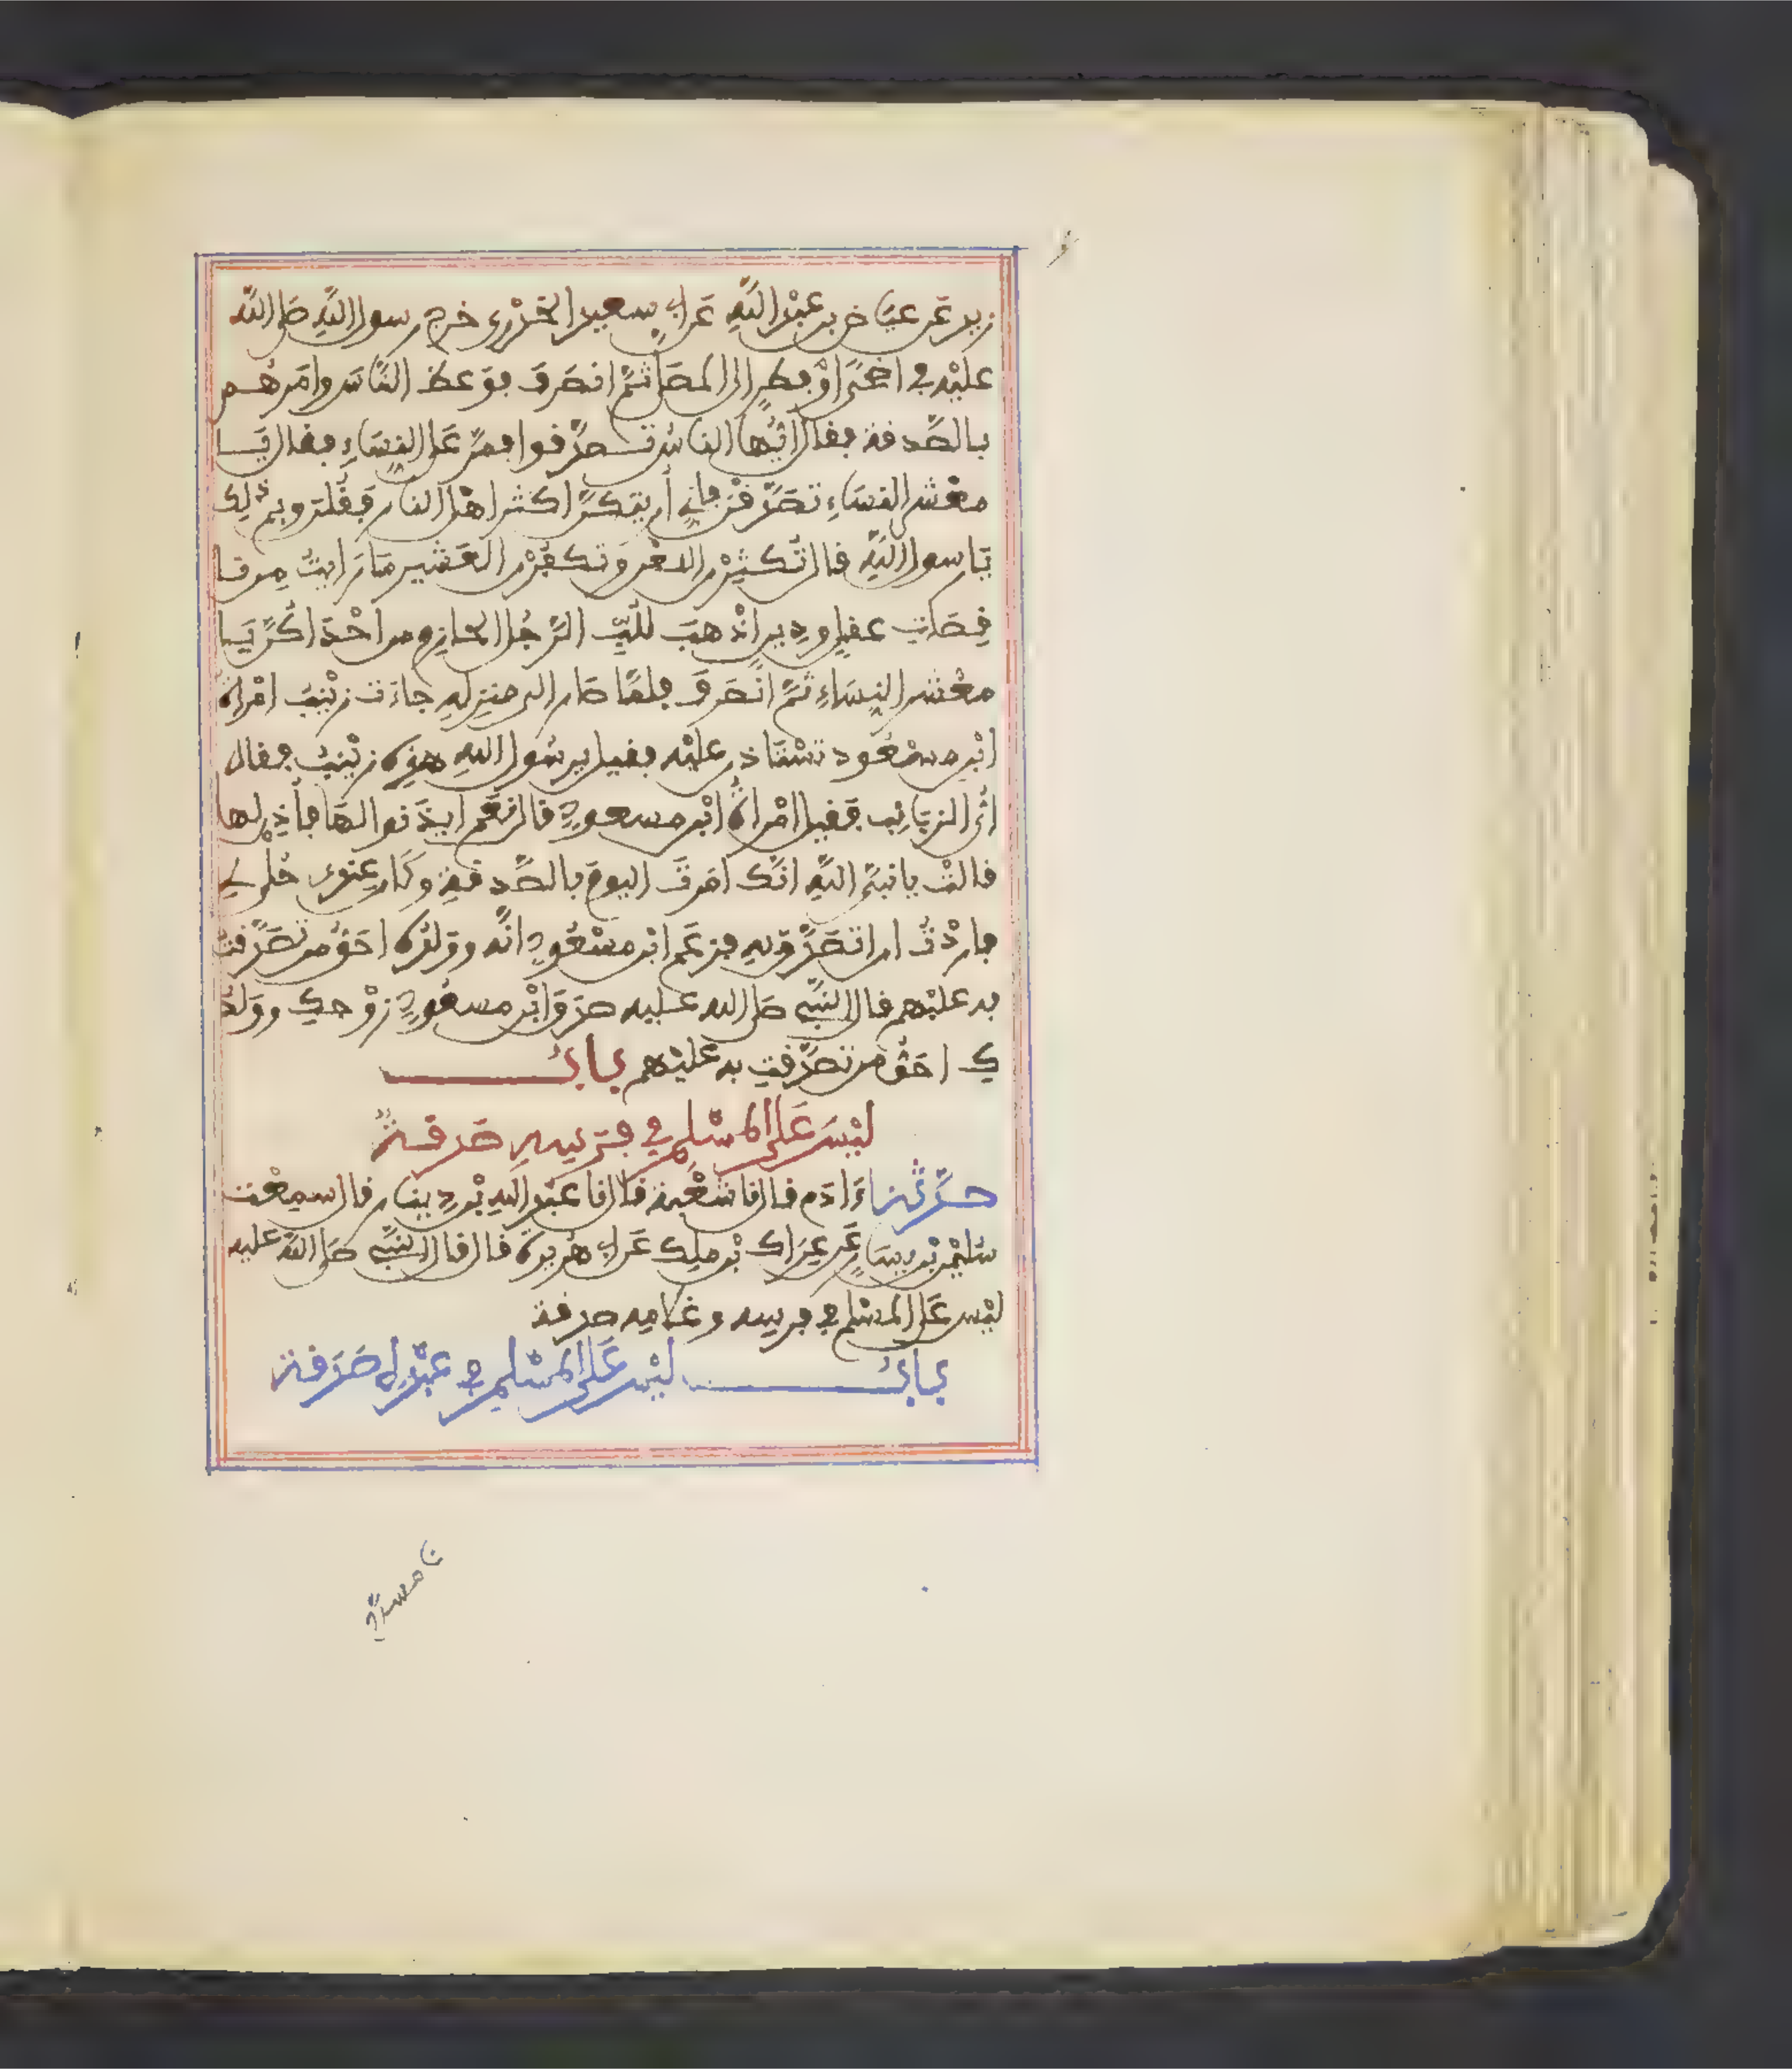 زيد عَن عِيَاضِ بن عبْدِ اللَّهِ عَن ابي سعيد الخدْري خرج رسول اللَّهِ صَلى اللَّه
عليْه في اضْحًى اوْ فطرٍ الى المصَلى ثمَّ انصَرفَ فوَعظ النَّاسَ وامَرهُم
بالصَّدقة فقال ايُّها الناسُ تصدَّقوا فمرَّ عَلى النِسَاءِ فقال يَا
معْشر النسَاءِ تصَدَّقْن فاني أريتكنَّ اكثر اهْل النار فقُلن وبم ذلِك
يَا رسول اللَّهِ قال تُكثِرْن اللعْن وتكفُرْن العَشير مَا رَايتُ مِن نا
قِصَاتِ عقلٍ ودِينٍ اذْهبَ للُبِّ الرَّجُل الحازِم من احْدَاكنَّ يَا
معْشر النِسَاءِ ثمَّ انْصَرفَ فلمَّا صَار الى منزِلهِ جاءَت زيْنبُ امْراةُ
ابْن مسْعُود تسْتاذن عليْه فقيل يا رسُول اللهِ هذِه زيْنبُ فقال
ائُّ الزيَانِب فقيل امْراةُ ابْن مسعودٍ قال نعَم ايذَنوا لهَا فأُذِن لها
قالتْ يا نبيَّ اللَّهِ انَّك امَرتَ اليومَ بالصَّدقةِ وكَان عِندِي حُلي لي
فاردْتُ ان اتصَدَّق بِهِ فزعَم ابن مسْعُودٍ انَّه وولدُه احَقُّ من تصَدَّقتُ
به عليْهم قال النبيُّ صَلى الله عليه صدَقَ ابْن مسعُودٍ زوْجكِ وولدُ
كِ احَقُّ من تصدَّقتِ به عليْهم بابُ
ليْسَ عَلى المسْلِم في فرَسِهِ صَدقةٌ
حدَّثنا ءَادَم قال نا شعْبة قال نا عبْد اللهِ بْن دِينار قال سمِعْت
سُليْمن بْن يسَارٍ عَن عِرَاك بْن ملِك عَن ابي هُريرة قال قال النبيُّ صَلى اللَّه عليه
ليْس عَلى المسْلم في فرسه وغلامِه صدقة
بابُ ليْس عَلى المسْلِم في عبْدِه صَدَقة